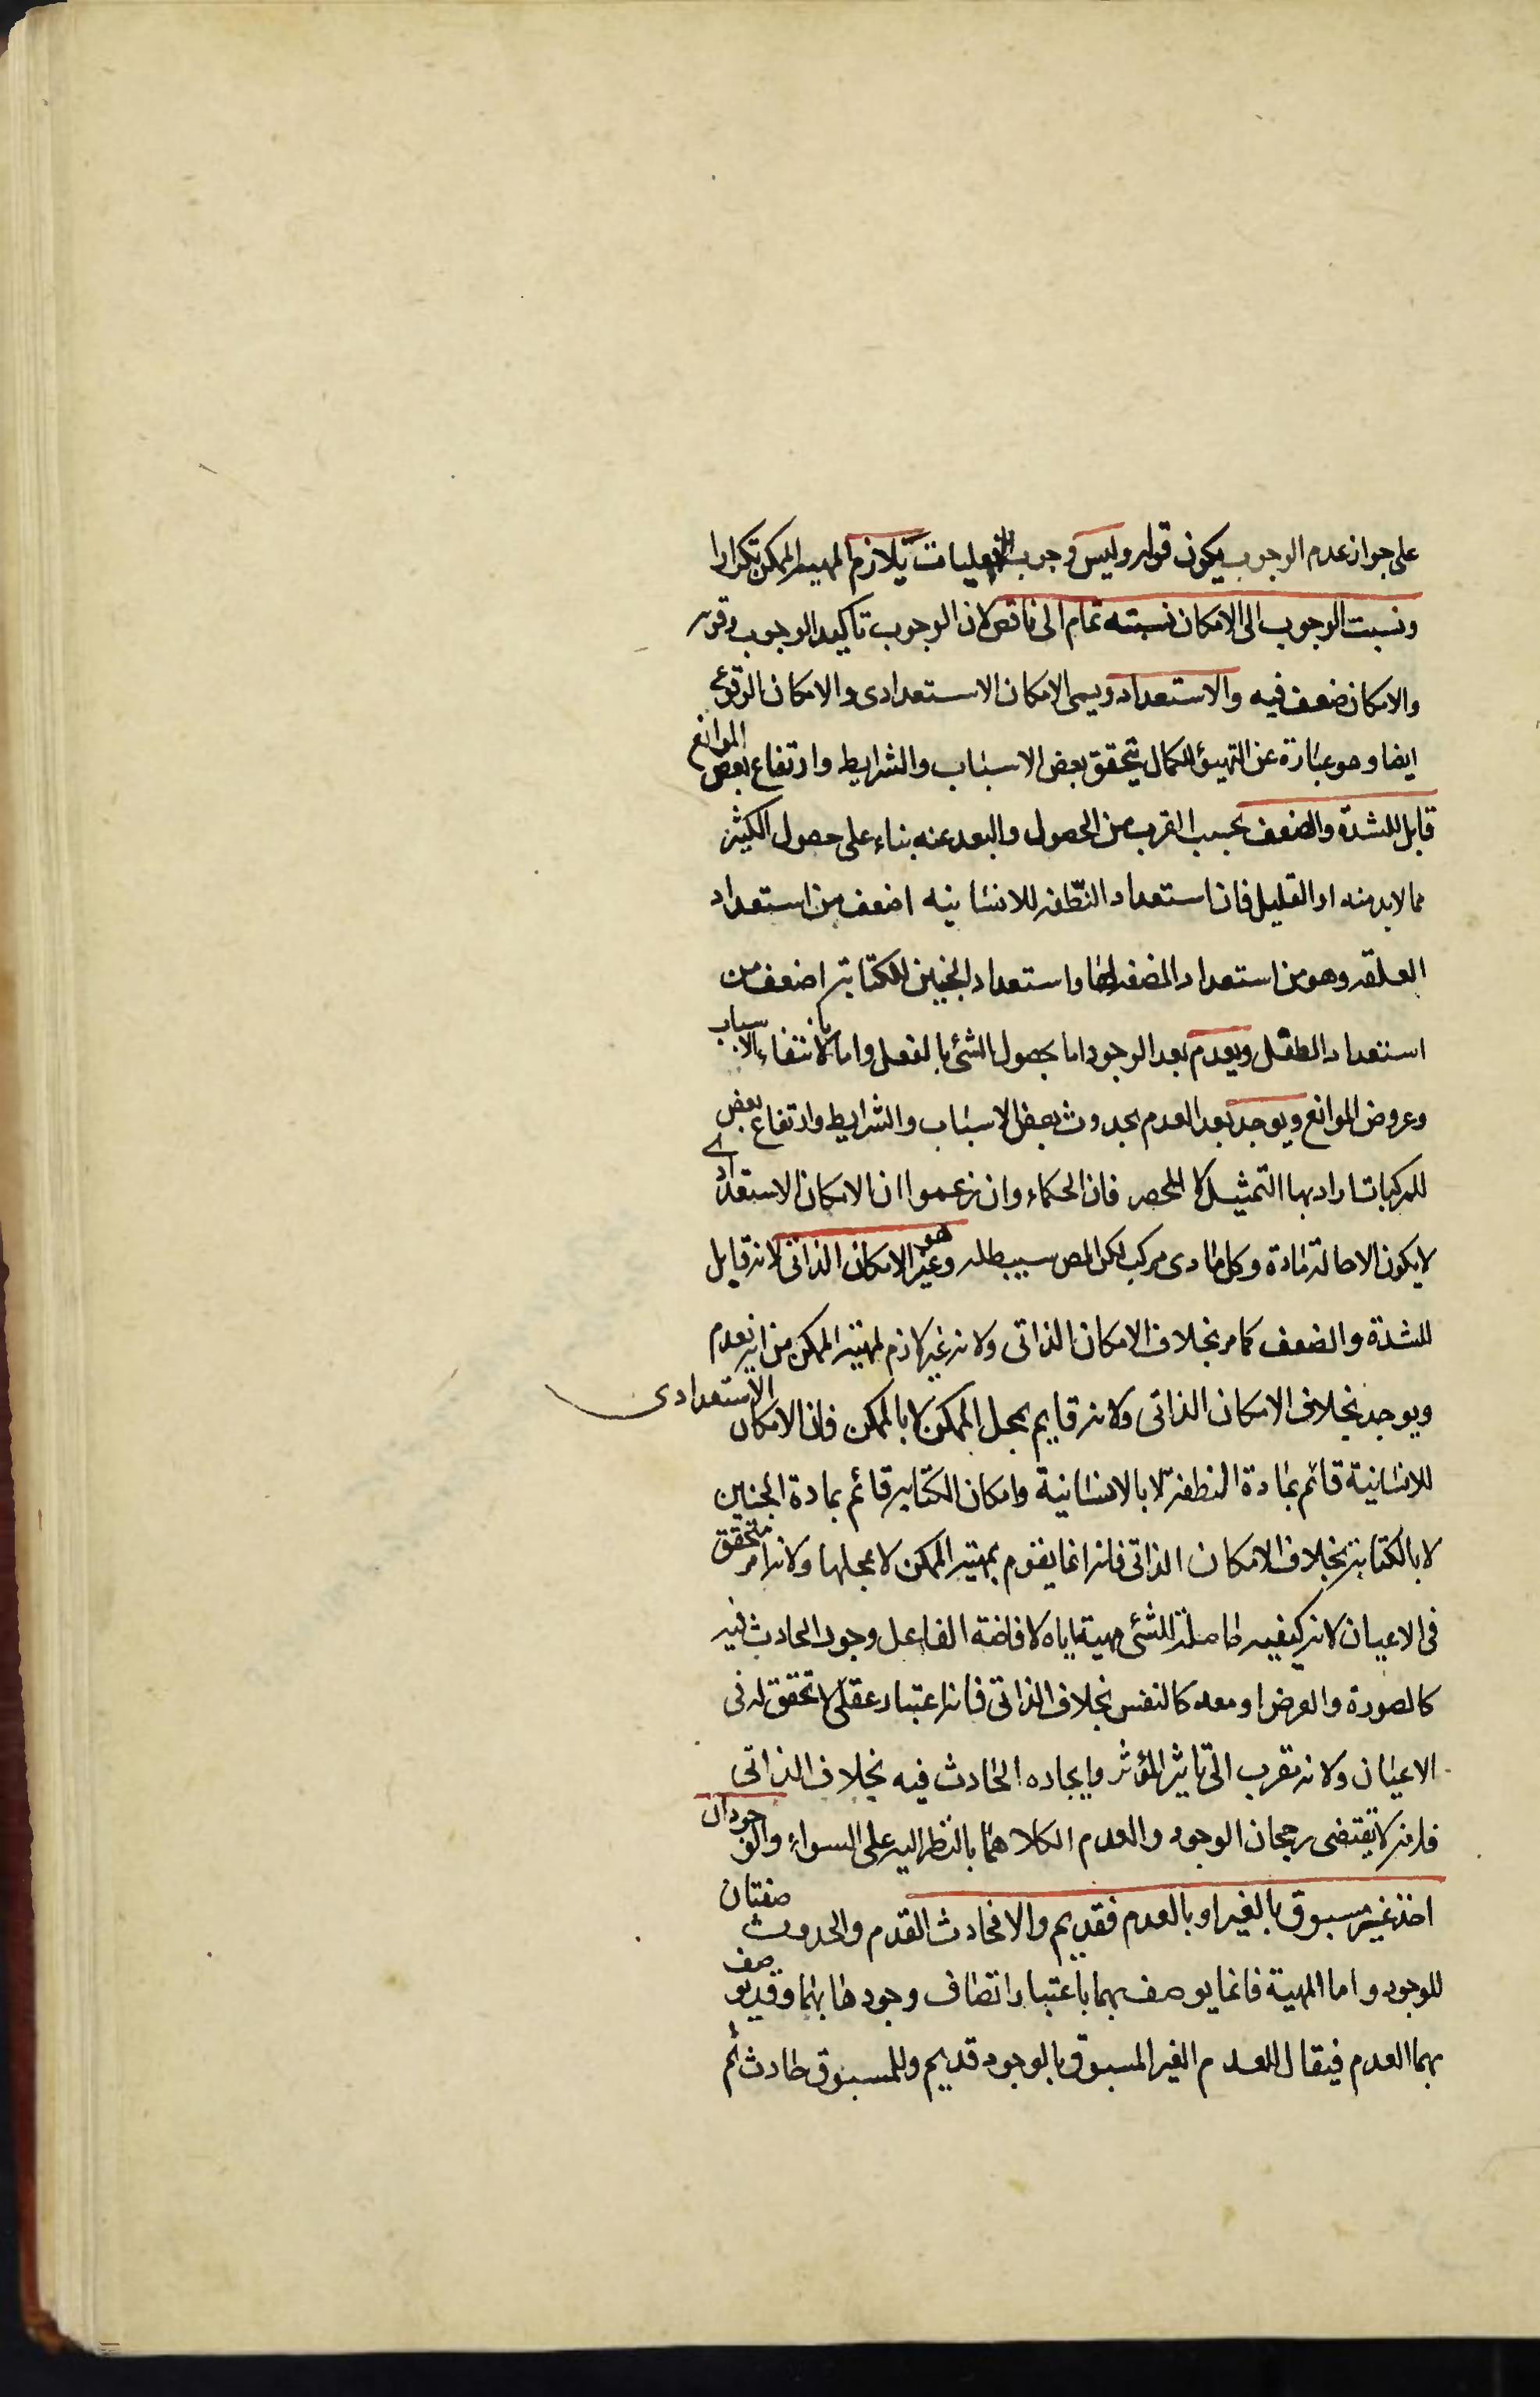 على جواز عدم الوجوب يكون قوله وليس وجوب الفعليات يلازم المهية الممكن تكرارا
ونسبت الوجوب الى الامكان نسبته تمام الى ناقص لان الوجوب تاكيد الوجوب وقوته
والامكان ضعف فيه والاستعداد ويسمى الامكان الاستعدادى والامكان الوقوعى
ايضا وهو عبارة عن التهيؤ للكمال بتحقق بعض الاسباب والشرايط وارتفاع بعض الموانع
قابل للشدة والضعف بحسب القرب من الحصول والبعد عنه بناء على حصول الكثير
مما لابد منه او القليل فان استعداد النطفه للانسانيه اضعف من استعداد
العلقه وهو من استعداد المضغه لها واستعداد الجنين للكتابة اضعف من
استعداد الطفل ويعدم بعد الوجود اما بحصول الشئ بالفعل واما بانتفاء الاسباب
وعروض الموانع ويوجد بعد العدم بحدوث بعض الاسباب والشرايط وارتفاع بعض
للمركبات اراد بها التمثيل لا الحصر فان الحكماء وان زعموا ان الامكان الاستعدادى
لا يكون الا حالة مادة وكل مادى مركب لكن المص سيبطله وهو غير الامكان الذاتى لانه قابل
للشدة والضعف كما مر بخلاف الامكان الذاتى ولانه غير لازم لمهية الممكن من انه يعدم
ويوجد بخلاف الامكان الذاتى ولانه قايم بمحل الممكن لا بالممكن فان الامكان الاستعدادى
للانسانية قائم بمادة النطفة لا بالانسانية وامكان الكتابه قائم بمادة الجنين
لا بالكتابة بخلاف الامكان الذاتى فانه انما يقوم بمهية الممكن لا بمحلها ولانه امر متحقق
فى الاعيان لانه كيفيه حاصلة للشئ مهيئة اياه لافاضة الفاعل وجود الحادث فيه
كالصورة والعرض او معه كالنفس بخلاف الذاتى فانه اعتبار عقلى لا تحقق له فى
الاعيان ولانه تقرب الى تاثير المؤثر وايجاده الحادث فيه بخلاف الذاتى
فانه لا يقتضى رجحان الوجود والعدم اذ كلاهما بالنظر اليه على السواء والوجود ان
اخذ غير مسبوق بالغير او بالعدم فقديم والا فحادث القدم والحدوث صفتان
للوجود واما المهية فانما يوصف بهما باعتبار اتصاف وجودها بهما وقد يوصف
بهما العدم فيقال للعدم الغير المسبوق بالوجود قديم وللمسبوق حادث ثم